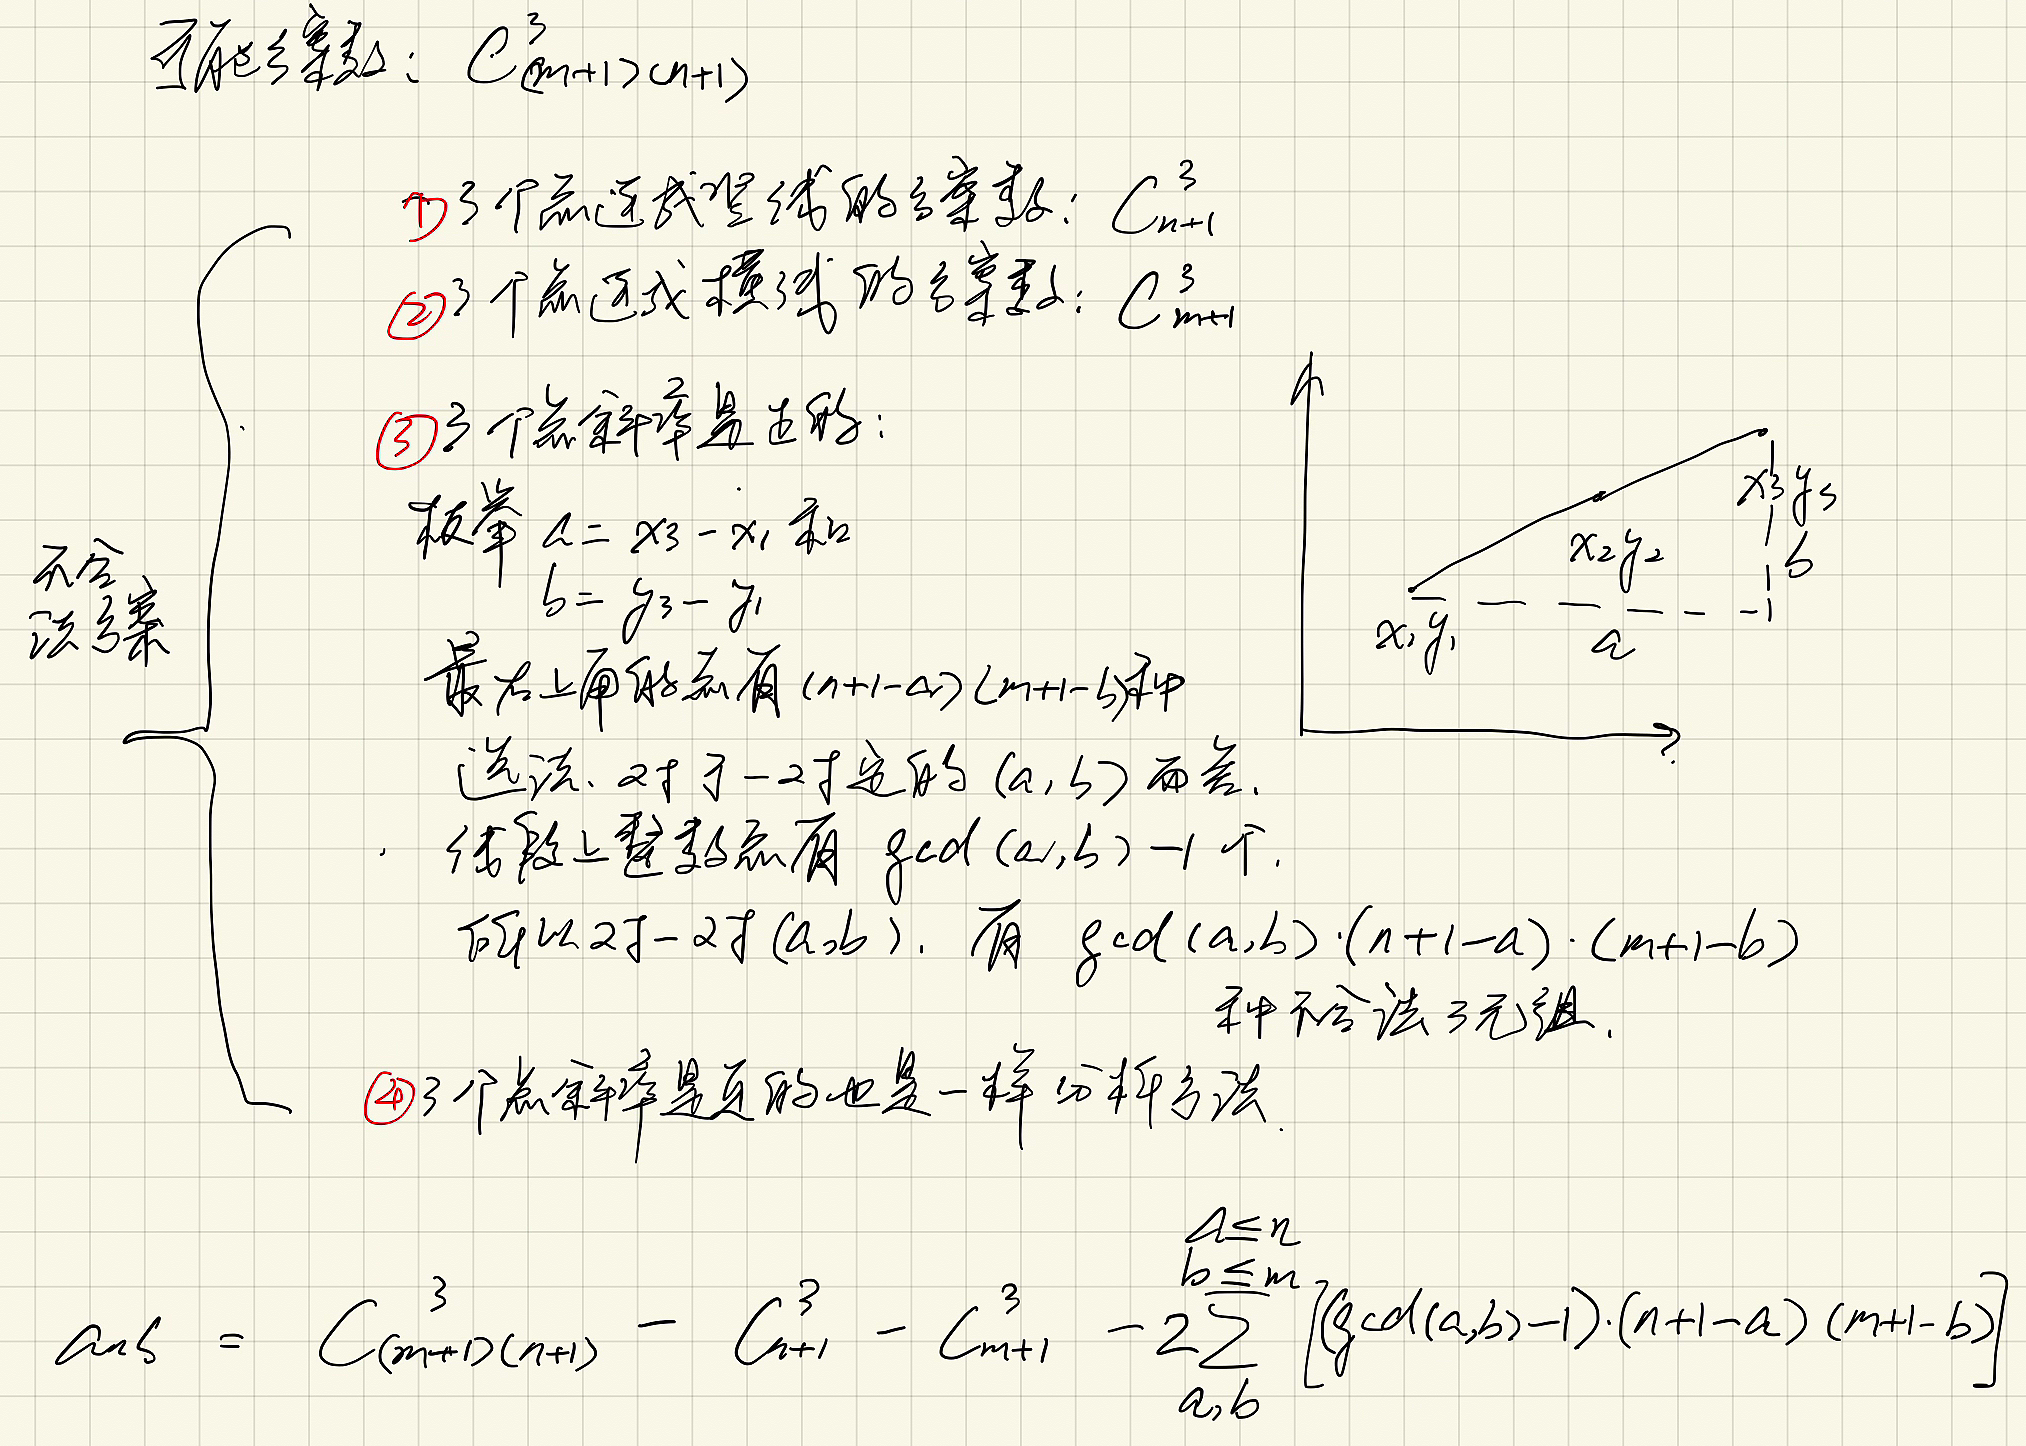 可能方案数: C³₍ₘ₊₁₎₍ₙ₊₁₎
①3个点连成竖线的方案数: C³ₙ₊₁
②3个点连成横线的方案数: C³ₘ₊₁
③3个点斜率是正的:
枚举 a = x₃ - x₁ 和
b = y₃ - y₁
最右上角的点有 (n+1-a)(m+1-b)种
选法、对于一对定的 (a, b) 而言.
线段上整数点有 gcd(a,b)-1 个.
所以对一对(a,b). 有 gcd(a,b)·(n+1-a)·(m+1-b)
种不合法3元组.
④3个点斜率是负的也是一样分析方法.
不合
法方案
x₃y₃
x₂y₂
b
x₁y₁
a
ans = C³₍ₘ₊₁₎₍ₙ₊₁₎ - C³ₙ₊₁ - C³ₘ₊₁ - 2∑ a≤n b≤m a,b [(gcd(a,b)-1)·(n+1-a)(m+1-b)]